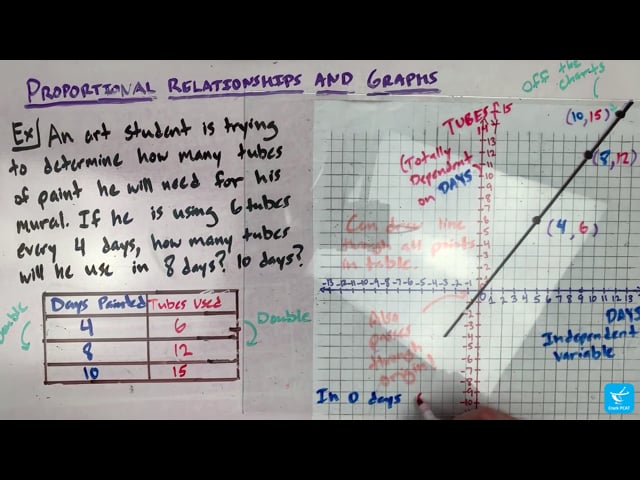 PROPORTIONAL RELATIONSHIPS AND GRAPHS
Ex) An art student is trying
to determine how many tubes
of paint he will need for his
mural. If he is using 6 tubes
every 4 days, how many tubes
will he use in 8 days? 10 days?
Days Painted Tubes Used
4 6
8 12
10 15
Double
Double
off the
charts
TUBES
(Totally
Dependent
on DAYS
(10,15)
(8,12)
(4,6)
Can draw line
through all points
in table.
Also
passes
through
origin!
DAYS
Independent
variable
In 0 days
15
14
13
12
11
10
9
8
7
6
5
4
3
2
1
-13 -12 -11 -10 -9 -8 -7 -6 -5 -4 -3 -2 -1
0 1 2 3 4 5 6 7 8 9 10 11 12 13
Crack PCAT